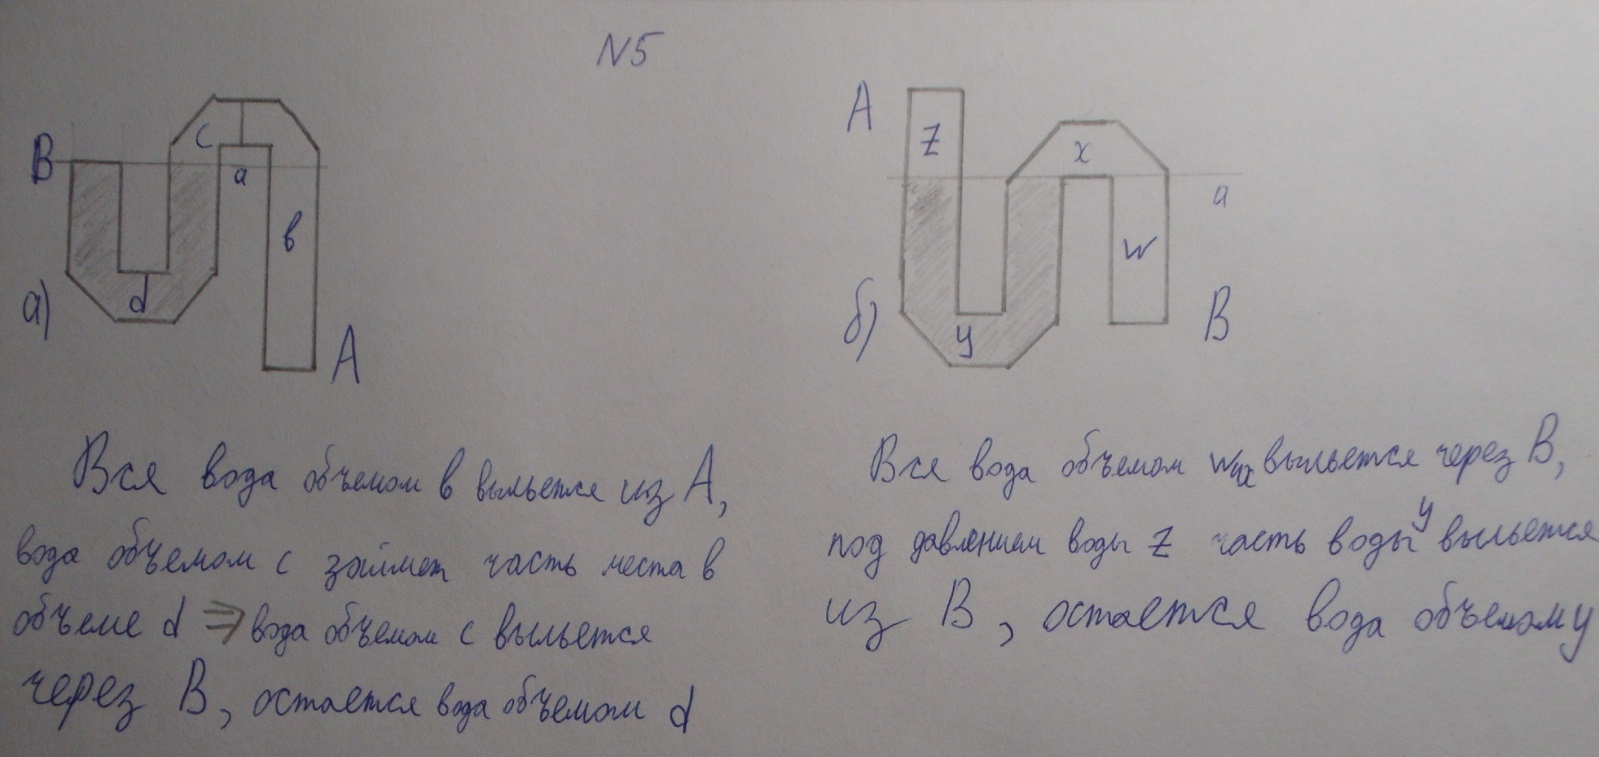 N5
B
c
a
в
d
а)
A
A
z
x
a
w
y
б)
B
Вся вода объемом в выльется из А,
вода объемом с займет часть места в
объеме d ⇒ вода объемом с выльется
через В, остается вода объемом d
Вся вода объемом w и x выльется через В,
под давлением воды z часть воды y выльется
из В, остается вода объемом y